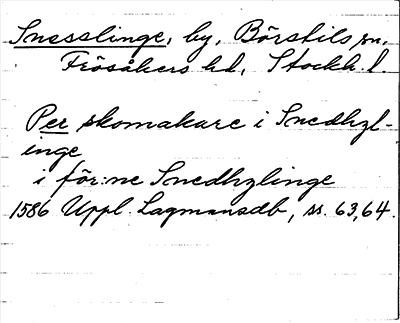 Snesslinge, by, Börstils sn,
Frösåkers hd, Stockh. l.
Per skomakare i Snedhzl-
inge
i för:ne Snedhzlinge
1586 Uppl. Lagmansdb, ss. 63,64.